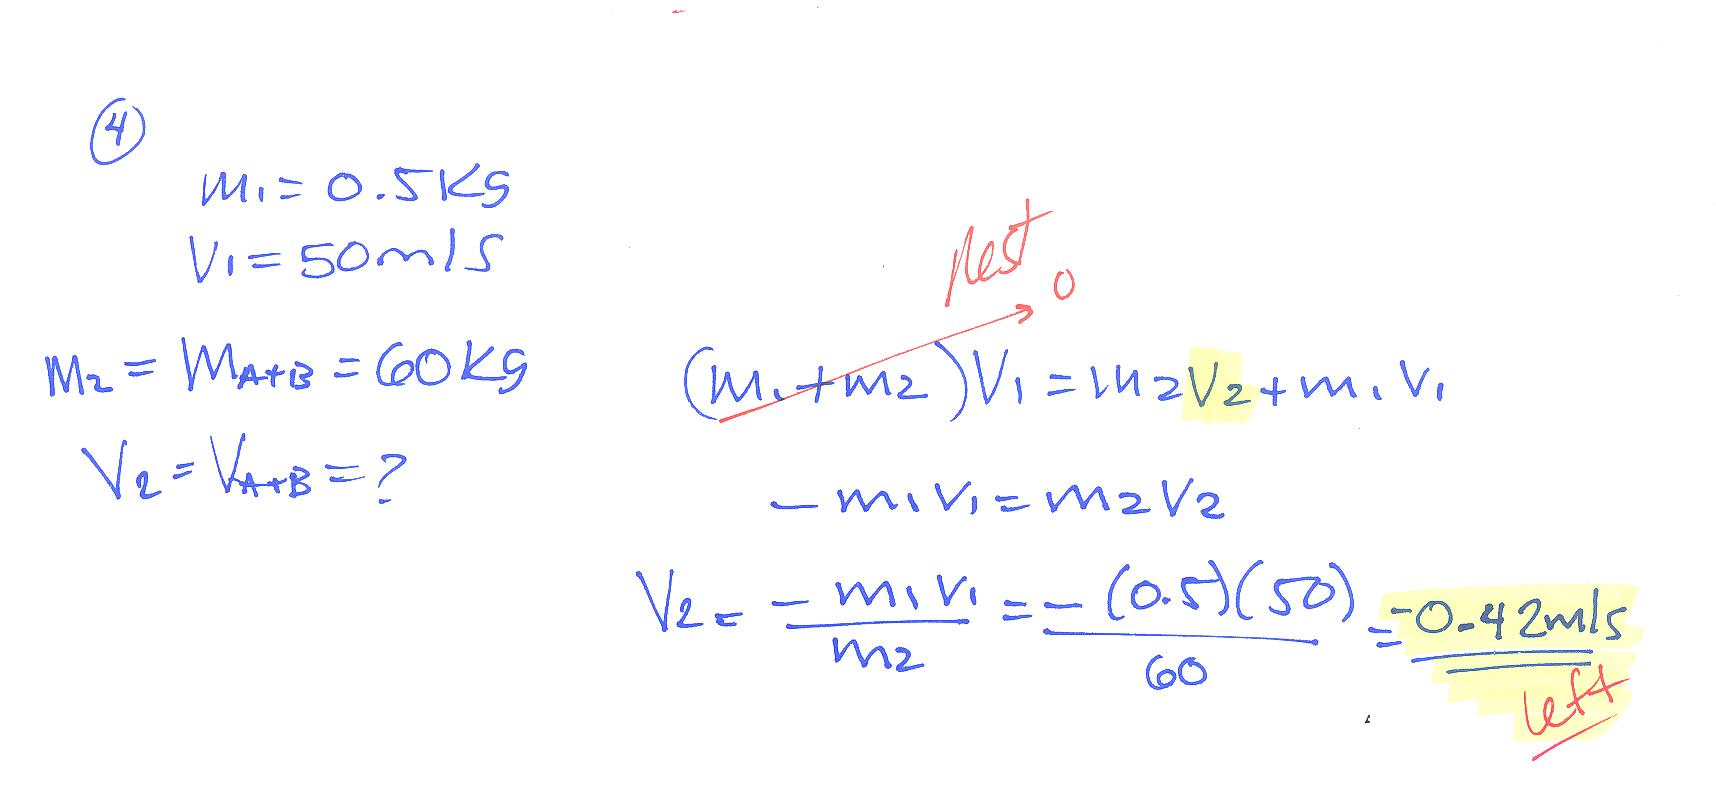 4
m1 = 0.5Kg
V1 = 50m/s
m2 = MA+B = 60Kg
V2 = VA+B = ?
Rest
0
(m1+m2)V1 = m2V2 + m1V1
-m1V1 = m2V2
V2 = -m1V1/m2 = -(0.5)(50)/60 = -0.42m/s
left